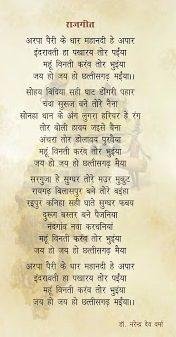 राजगीत
अरपा पैरी के धार महानदी हे अपार
इंदरावती हा पखारय तोर पईंया
महूं विनती करंव तोर भुंइया
जय हो जय हो छत्तीसगढ़ मईंया।।
सोहय बिंदिया सही घाट डोंगरी पहार
चंदा सुरूज बने तोरे नैना
सोनहा धान के अंग लुगरा हरियर हे रंग
तोर बोली हावय जइसे मैना
अंचरा तोर डोलावय पुरवैया
महूं विनती करंव तोर भुंइया
जय हो जय हो छत्तीसगढ़ मैया
सरगुजा हे सुग्घर तोरे मउर मुकुट
रायगढ़ बिलासपुर बने तोरे बइंहा
रइपुर कनिहा सही घाते सुग्घर फबय
दुरूग बस्तर बने पैजनिया
नांदगांव नवा करधनिया
महूं विनती करंव तोर भुंइया
जय हो जय हो छत्तीसगढ़ मैया
अरपा पैरी के धार महानदी हे अपार
इंदरावती हा पखारय तोर पईंया
महूं विनती करंव तोर भुंइया
जय हो जय हो छत्तीसगढ़ मईंया।।
डॉ. नरेन्द्र देव वर्मा